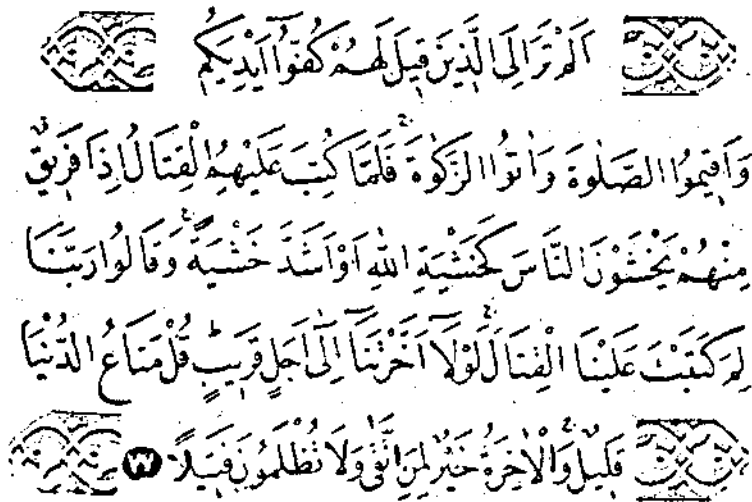 اَلَمْ تَرَ اِلَى الَّذٖينَ قٖيلَ لَهُمْ كُفُّٓوا اَيْدِيَكُمْ
وَاَقٖيمُوا الصَّلٰوةَ وَاٰتُوا الزَّكٰوةَۚ فَلَمَّا كُتِبَ عَلَيْهِمُ الْقِتَالُ اِذَا فَرٖيقٌ
مِنْهُمْ يَخْشَوْنَ النَّاسَ كَخَشْيَةِ اللّٰهِ اَوْ اَشَدَّ خَشْيَةًۚ وَقَالُوا رَبَّنَا
لِمَ كَتَبْتَ عَلَيْنَا الْقِتَالَۚ لَوْلَٓا اَخَّرْتَنَٓا اِلٰٓى اَجَلٍ قَرٖيبٍؕ قُلْ مَتَاعُ الدُّنْيَا
قَلٖيلٌۚ وَالْاٰخِرَةُ خَيْرٌ لِمَنِ اتَّقٰى وَلَا تُظْلَمُونَ فَتٖيلًا ٧٧